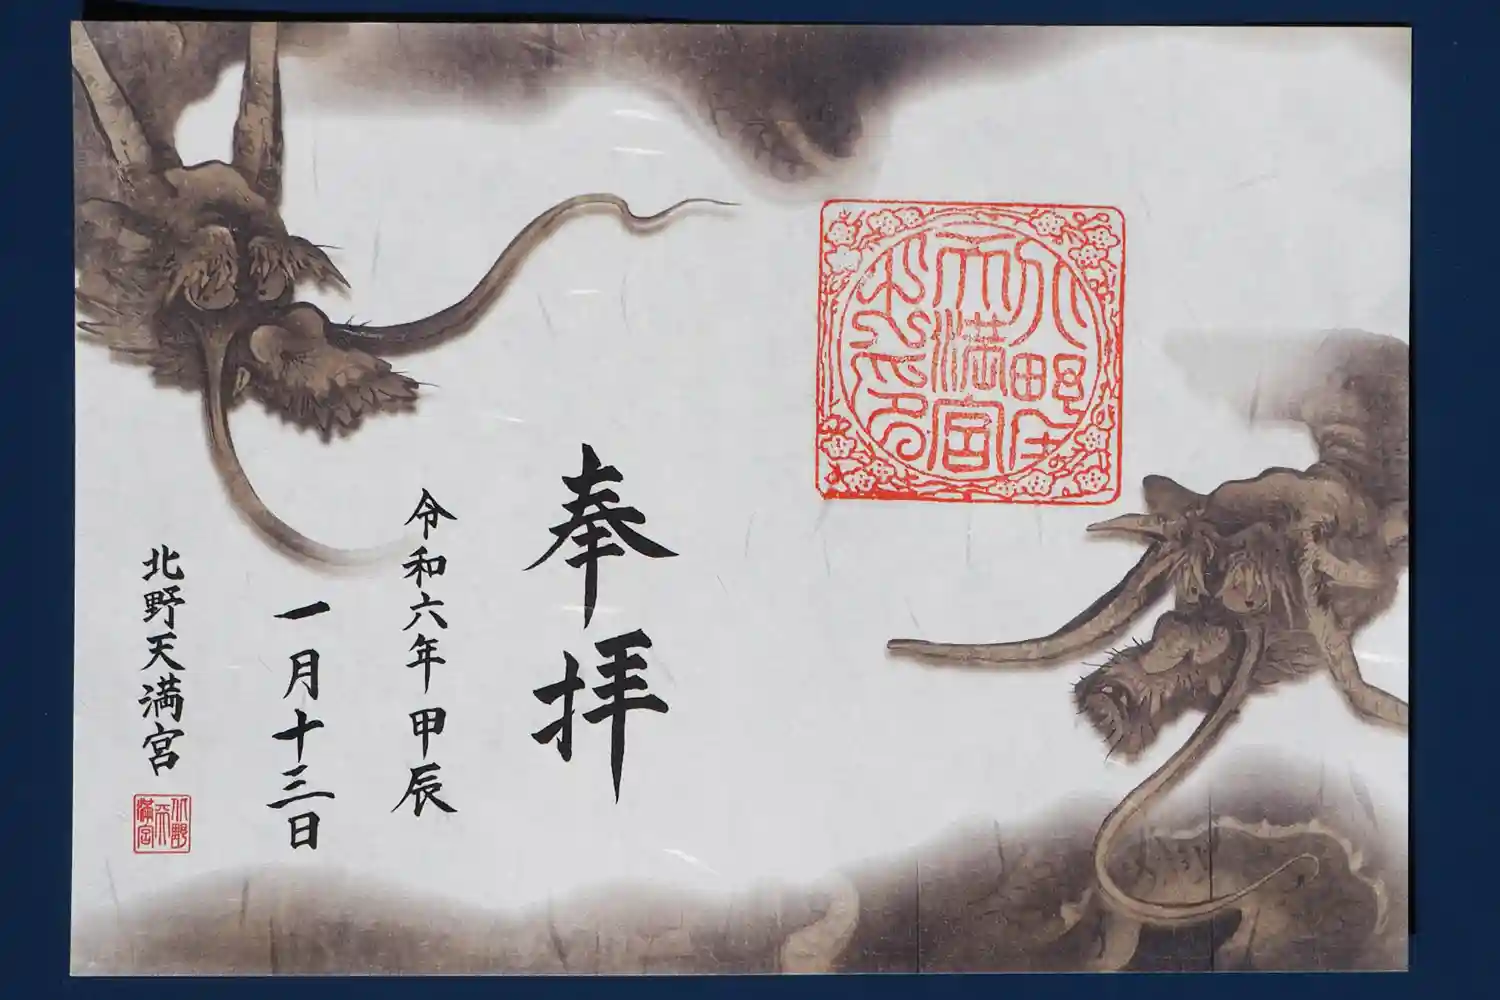 北野
天満宮
之印
奉拝
令和六年甲辰
一月十三日
北野天満宮
北野
天
満宮